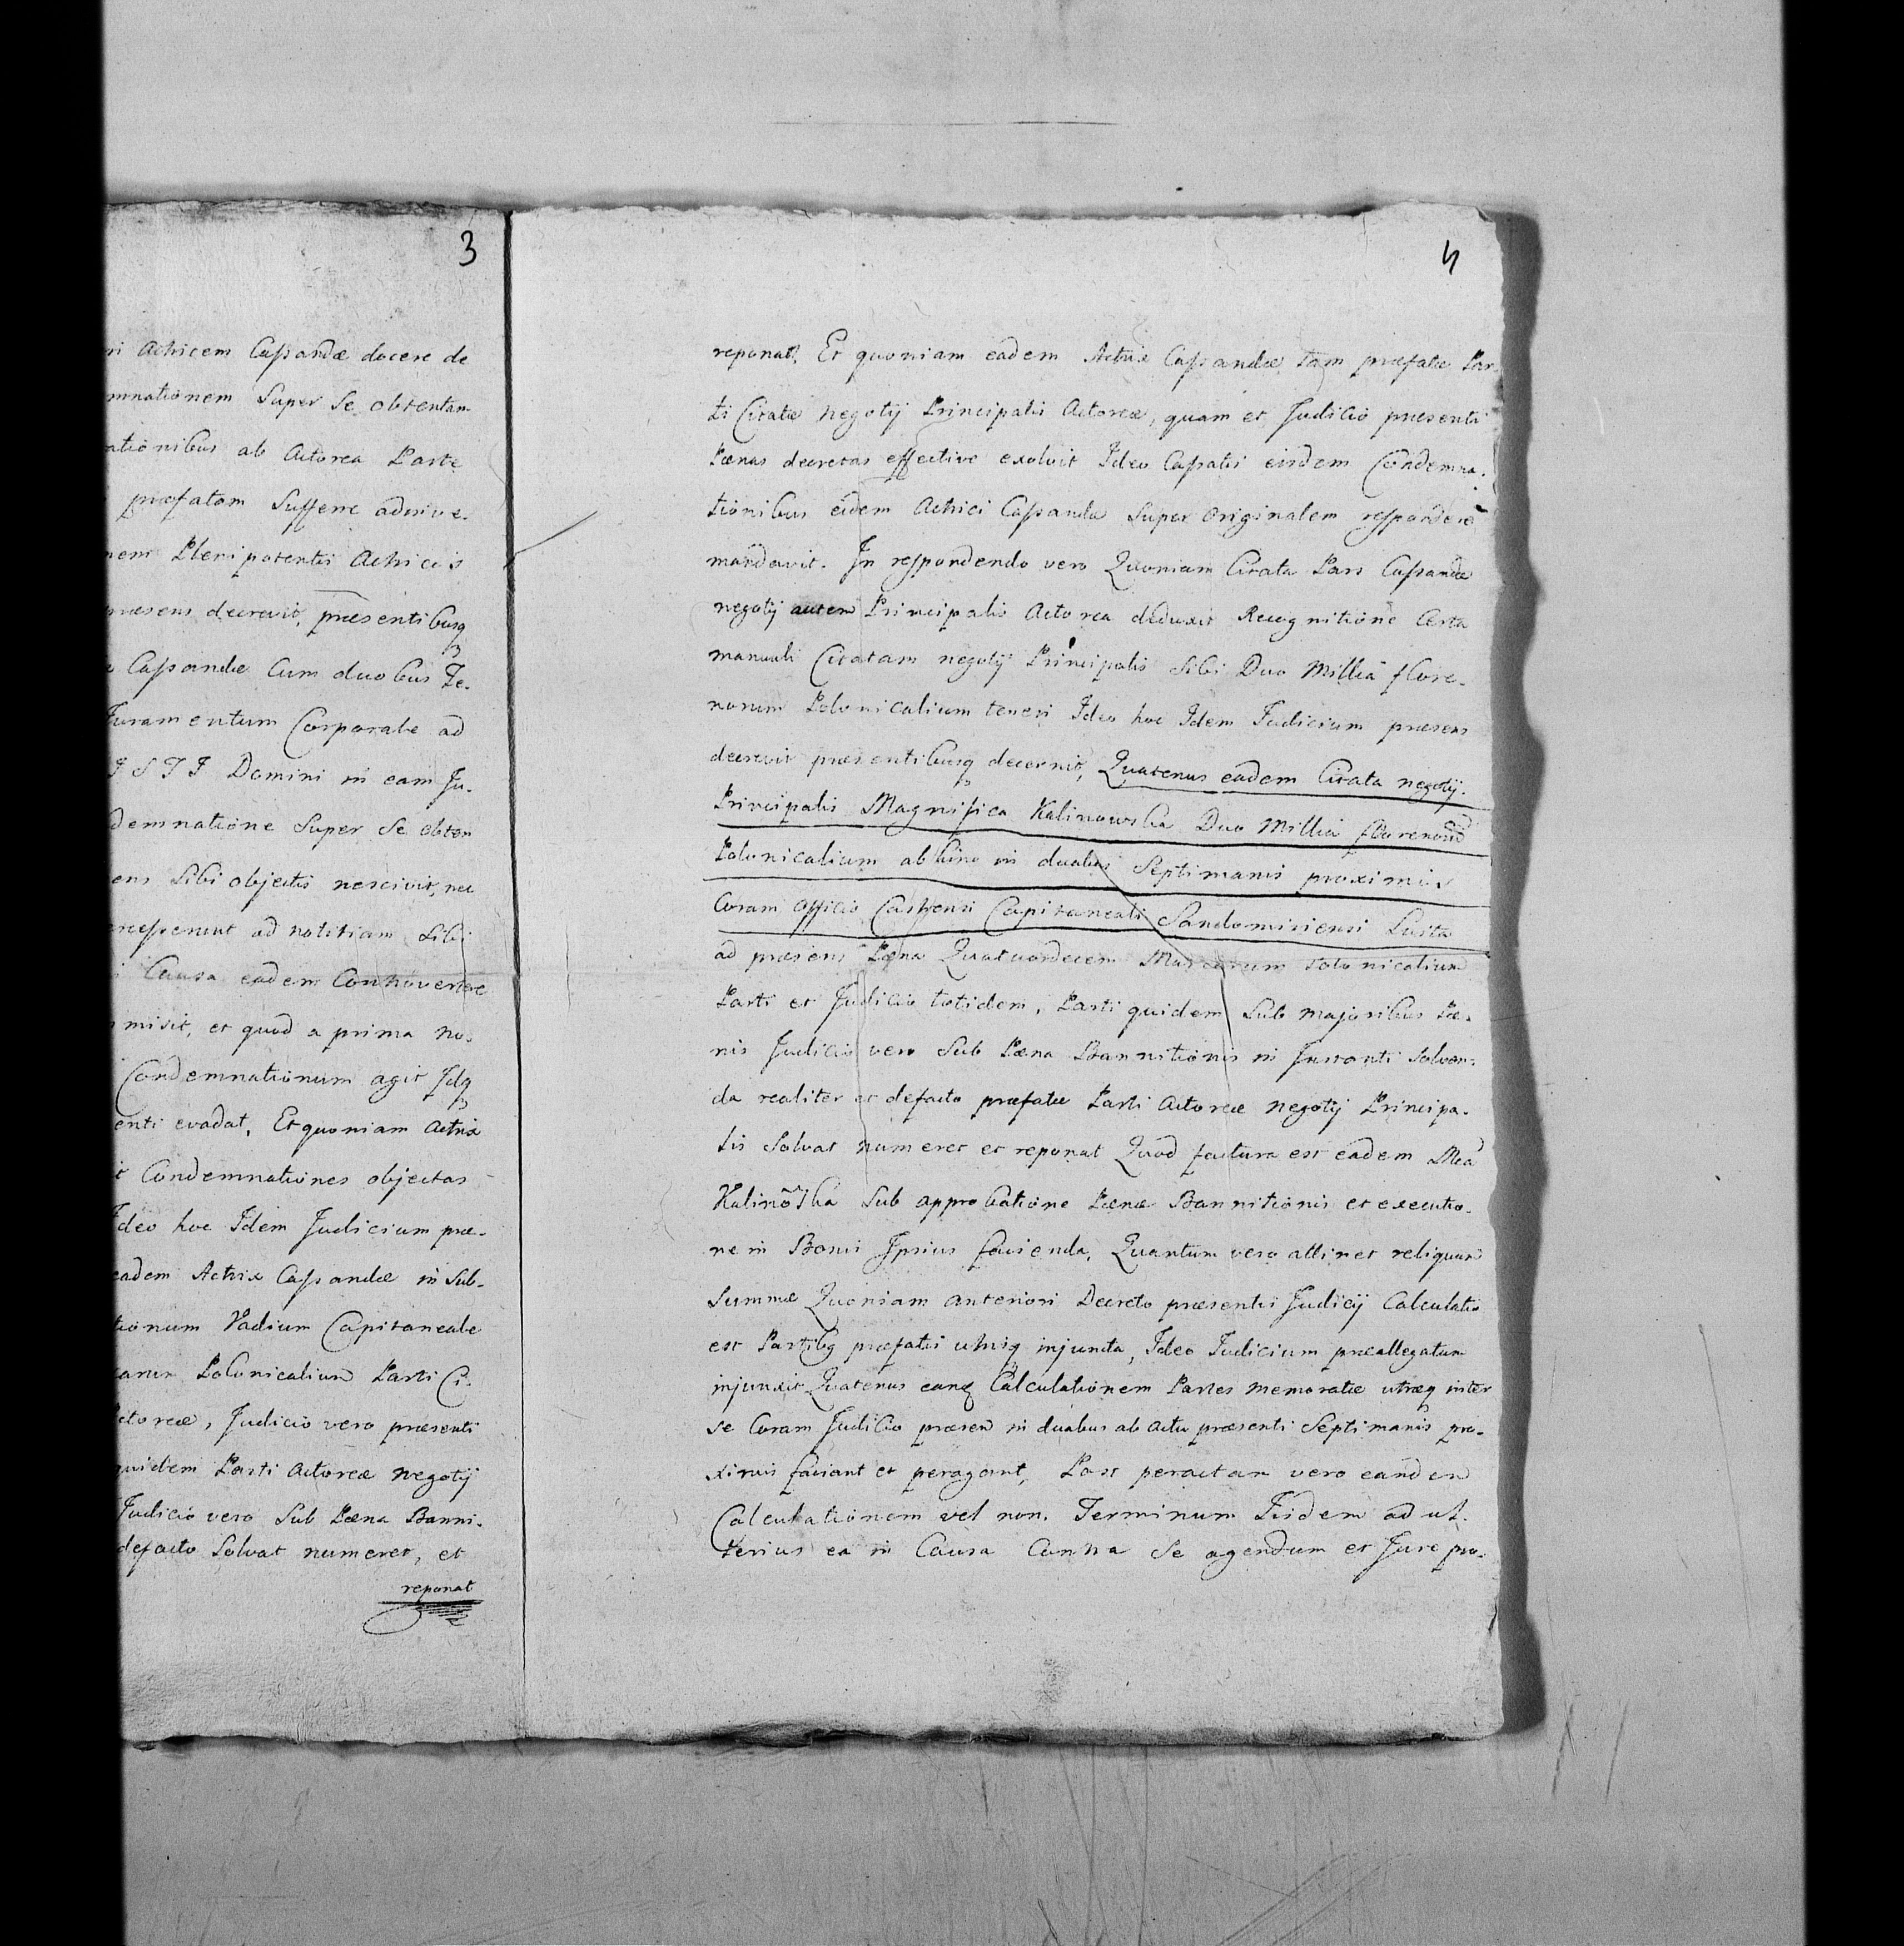 3
ri Actricem Cassandæ docere de
mnationem Super Se obtentam
ationibus ab Actorea Parte
præfatam Sufferre adinve-
nem Plenipotentis Actricis
præsens decrevit, præsentibusq
Cassandæ Cum duobus Te-
Juramentum Corporale ad
Domini in eam Ju-
demnatione Super Se obten
ens Sibi objectis nescivit, nec
ad notitiam Sibi
Causa eadem Controvertere
misit, et quod a prima no-
Condemnationum agit Idq
enti evadat, Et quoniam Actrix
Condemnationes objectas
Ideo hoc Idem Judicium præ-
eadem Actrix Cassandæ in Sub-
tionum Vadium Capitaneale
carum Polonicalium Parti Ci-
ctoreæ, Judicio vero præsenti
quidem Parti Actoreæ negotÿ
Judicio vero Sub Pæna Banni-
defacto Solvat numeret, et
reponat
4
reponat, Et quoniam eadem Actrix Cassandæ tam præfatæ Par-
ti Citatæ negotÿ Principalis Actoreæ, quam et Judicio præsenti
Pænas decretas effective exolvit Ideo Cassatis eisdem Condemna-
tionibus eidem Actrici Cassandæ Super originalem respondere
mandavit. In respondendo vero Quoniam Citata Pars Cassandæ
negotÿ autem Principalis Actorea deduxit Recognitione Certa
manuali Citatam negotÿ Principalis Sibi Duo Millia flore-
norum Polonicalium teneri Ideo hoc Idem Judicium præsens
decrevit præsentibusq decernit, Quatenus eadem Citata negotÿ
Principalis Magnifica Kalinowska Duo Millia florenorum
Polonicalium abhinc in duabus Septimanis proximis
Coram Officio Castrensi Capitaneali Sandomiriensi Luita
ad præsens Pæna Quatuordecem Marcarum Polonicalium
Parti et Judicio totidem, Parti quidem Sub majoribus Pæ-
nis Judicio vero Sub Pæna Bannitionis in Instanti Solven-
da realiter et defacto præfatæ Parti Actoreæ negotÿ Principa-
lis Solvat numeret et reponat Quod factura est eadem Mca
Kalinõska Sub approbatione Pænæ Bannitionis et executio-
ne in Bonis Ipsius facienda, Quantum vero attinet reliquum
Summæ Quoniam anteriori Decreto præsentis Judicÿ Calculatio
est Partibq præfatis utrisq injuncta, Ideo Judicium præallegatum
injunxit Quatenus eanq Calculationem Partes memoratæ utræq inter
se Coram Judicio præsen in duabus ab actu præsenti Septimanis pro-
ximis faciant et peragant, Post peractam vero eandem
Calculationem vel non. Terminum Iisdem ad ul-
terius ea in Causa Contra Se agendum et Jure pro-